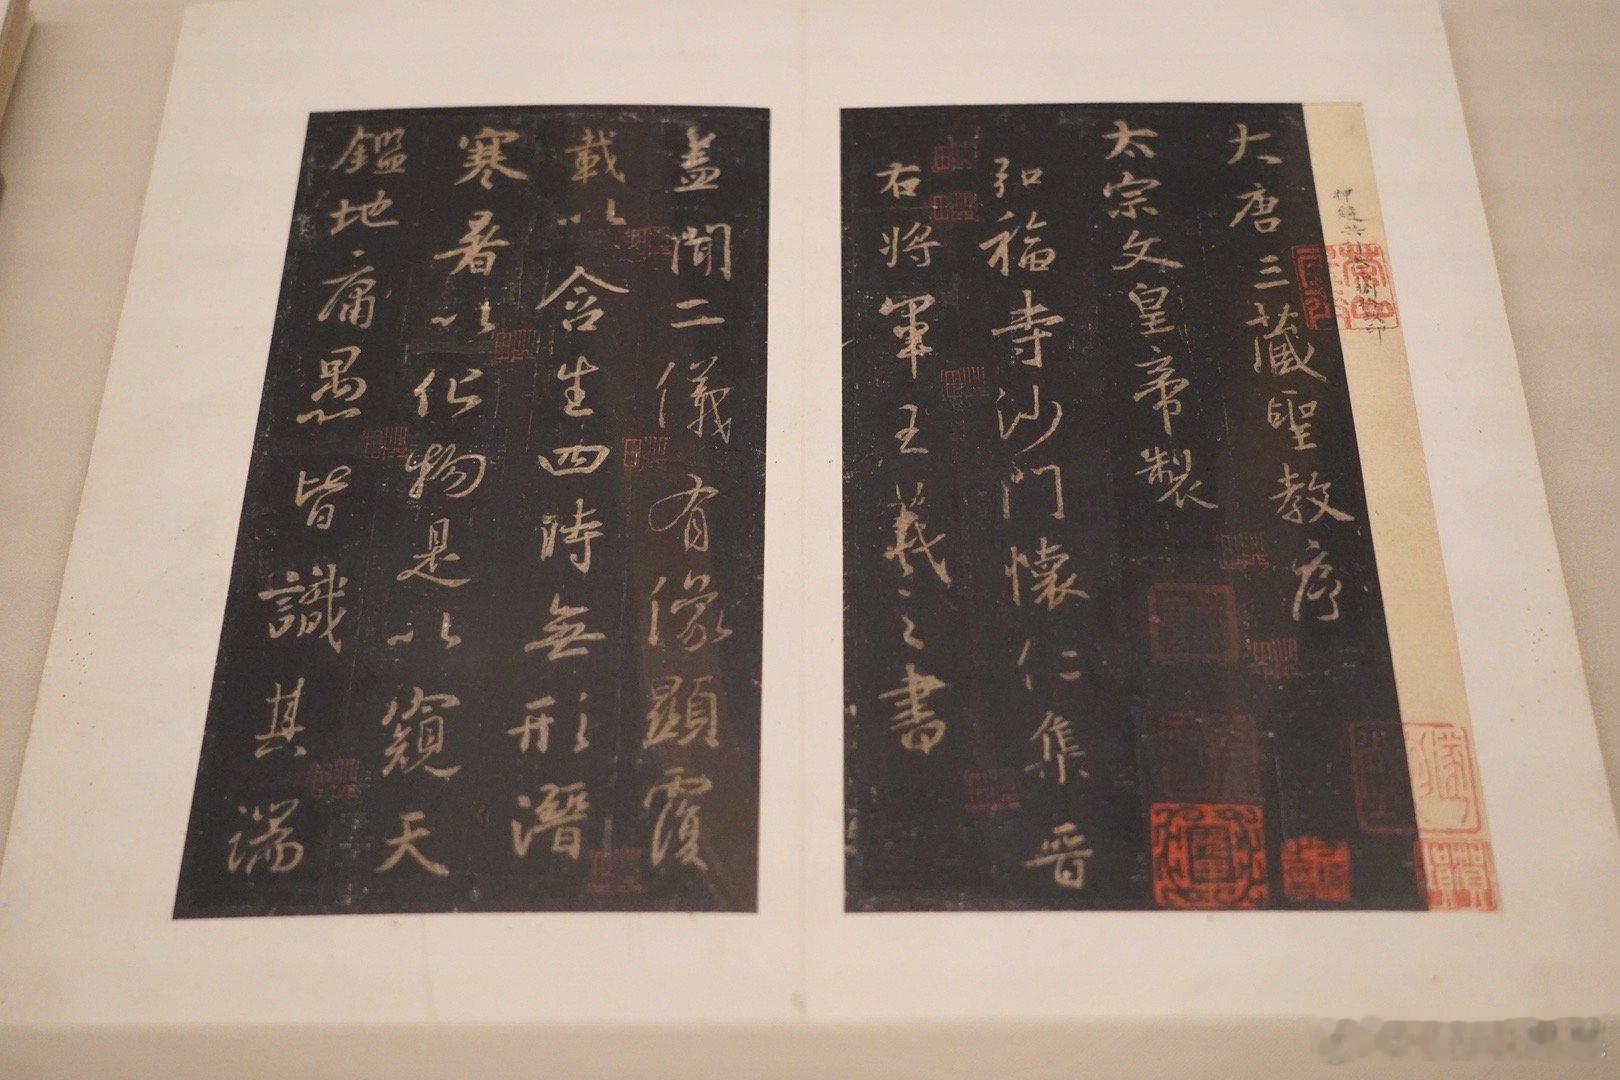 大唐三藏聖教序
太宗文皇帝製
弘福寺沙門懷仁集晋
右將軍王羲之書
蓋聞二儀有像顯覆
載以含生四時無形潛
寒暑以化物是以窺天
鑑地庸愚皆識其端